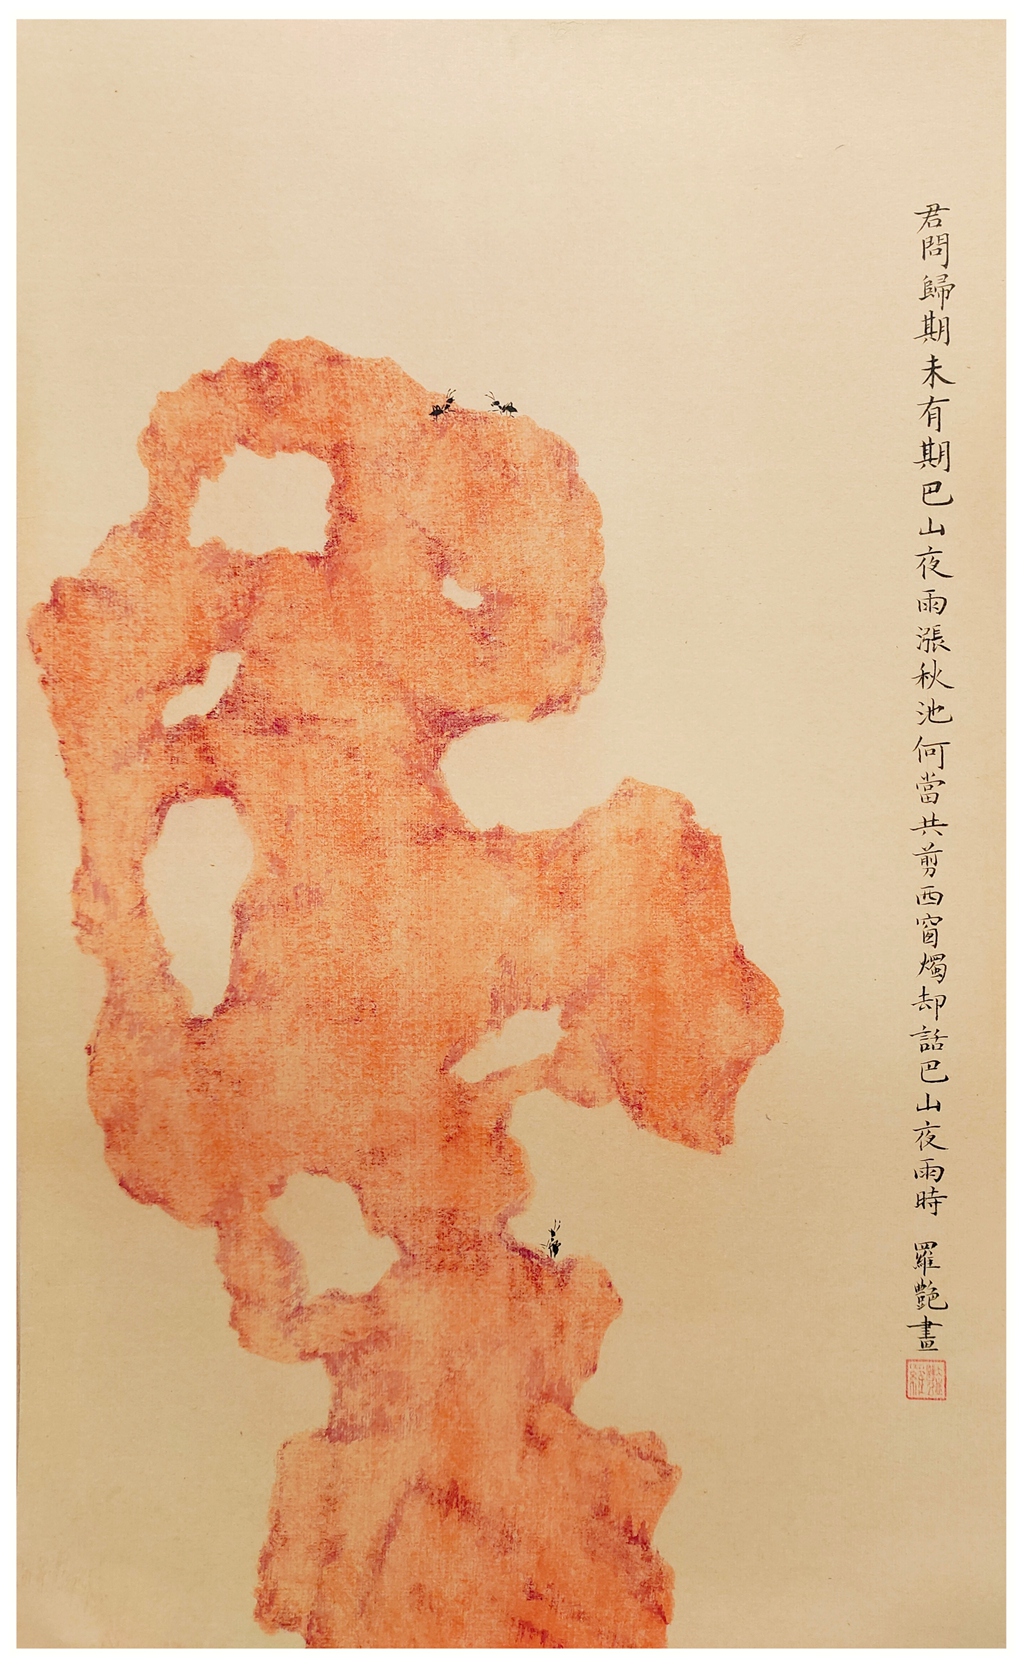 君問歸期未有期巴山夜雨漲秋池何當共剪西窗燭却話巴山夜雨時 羅艷畫